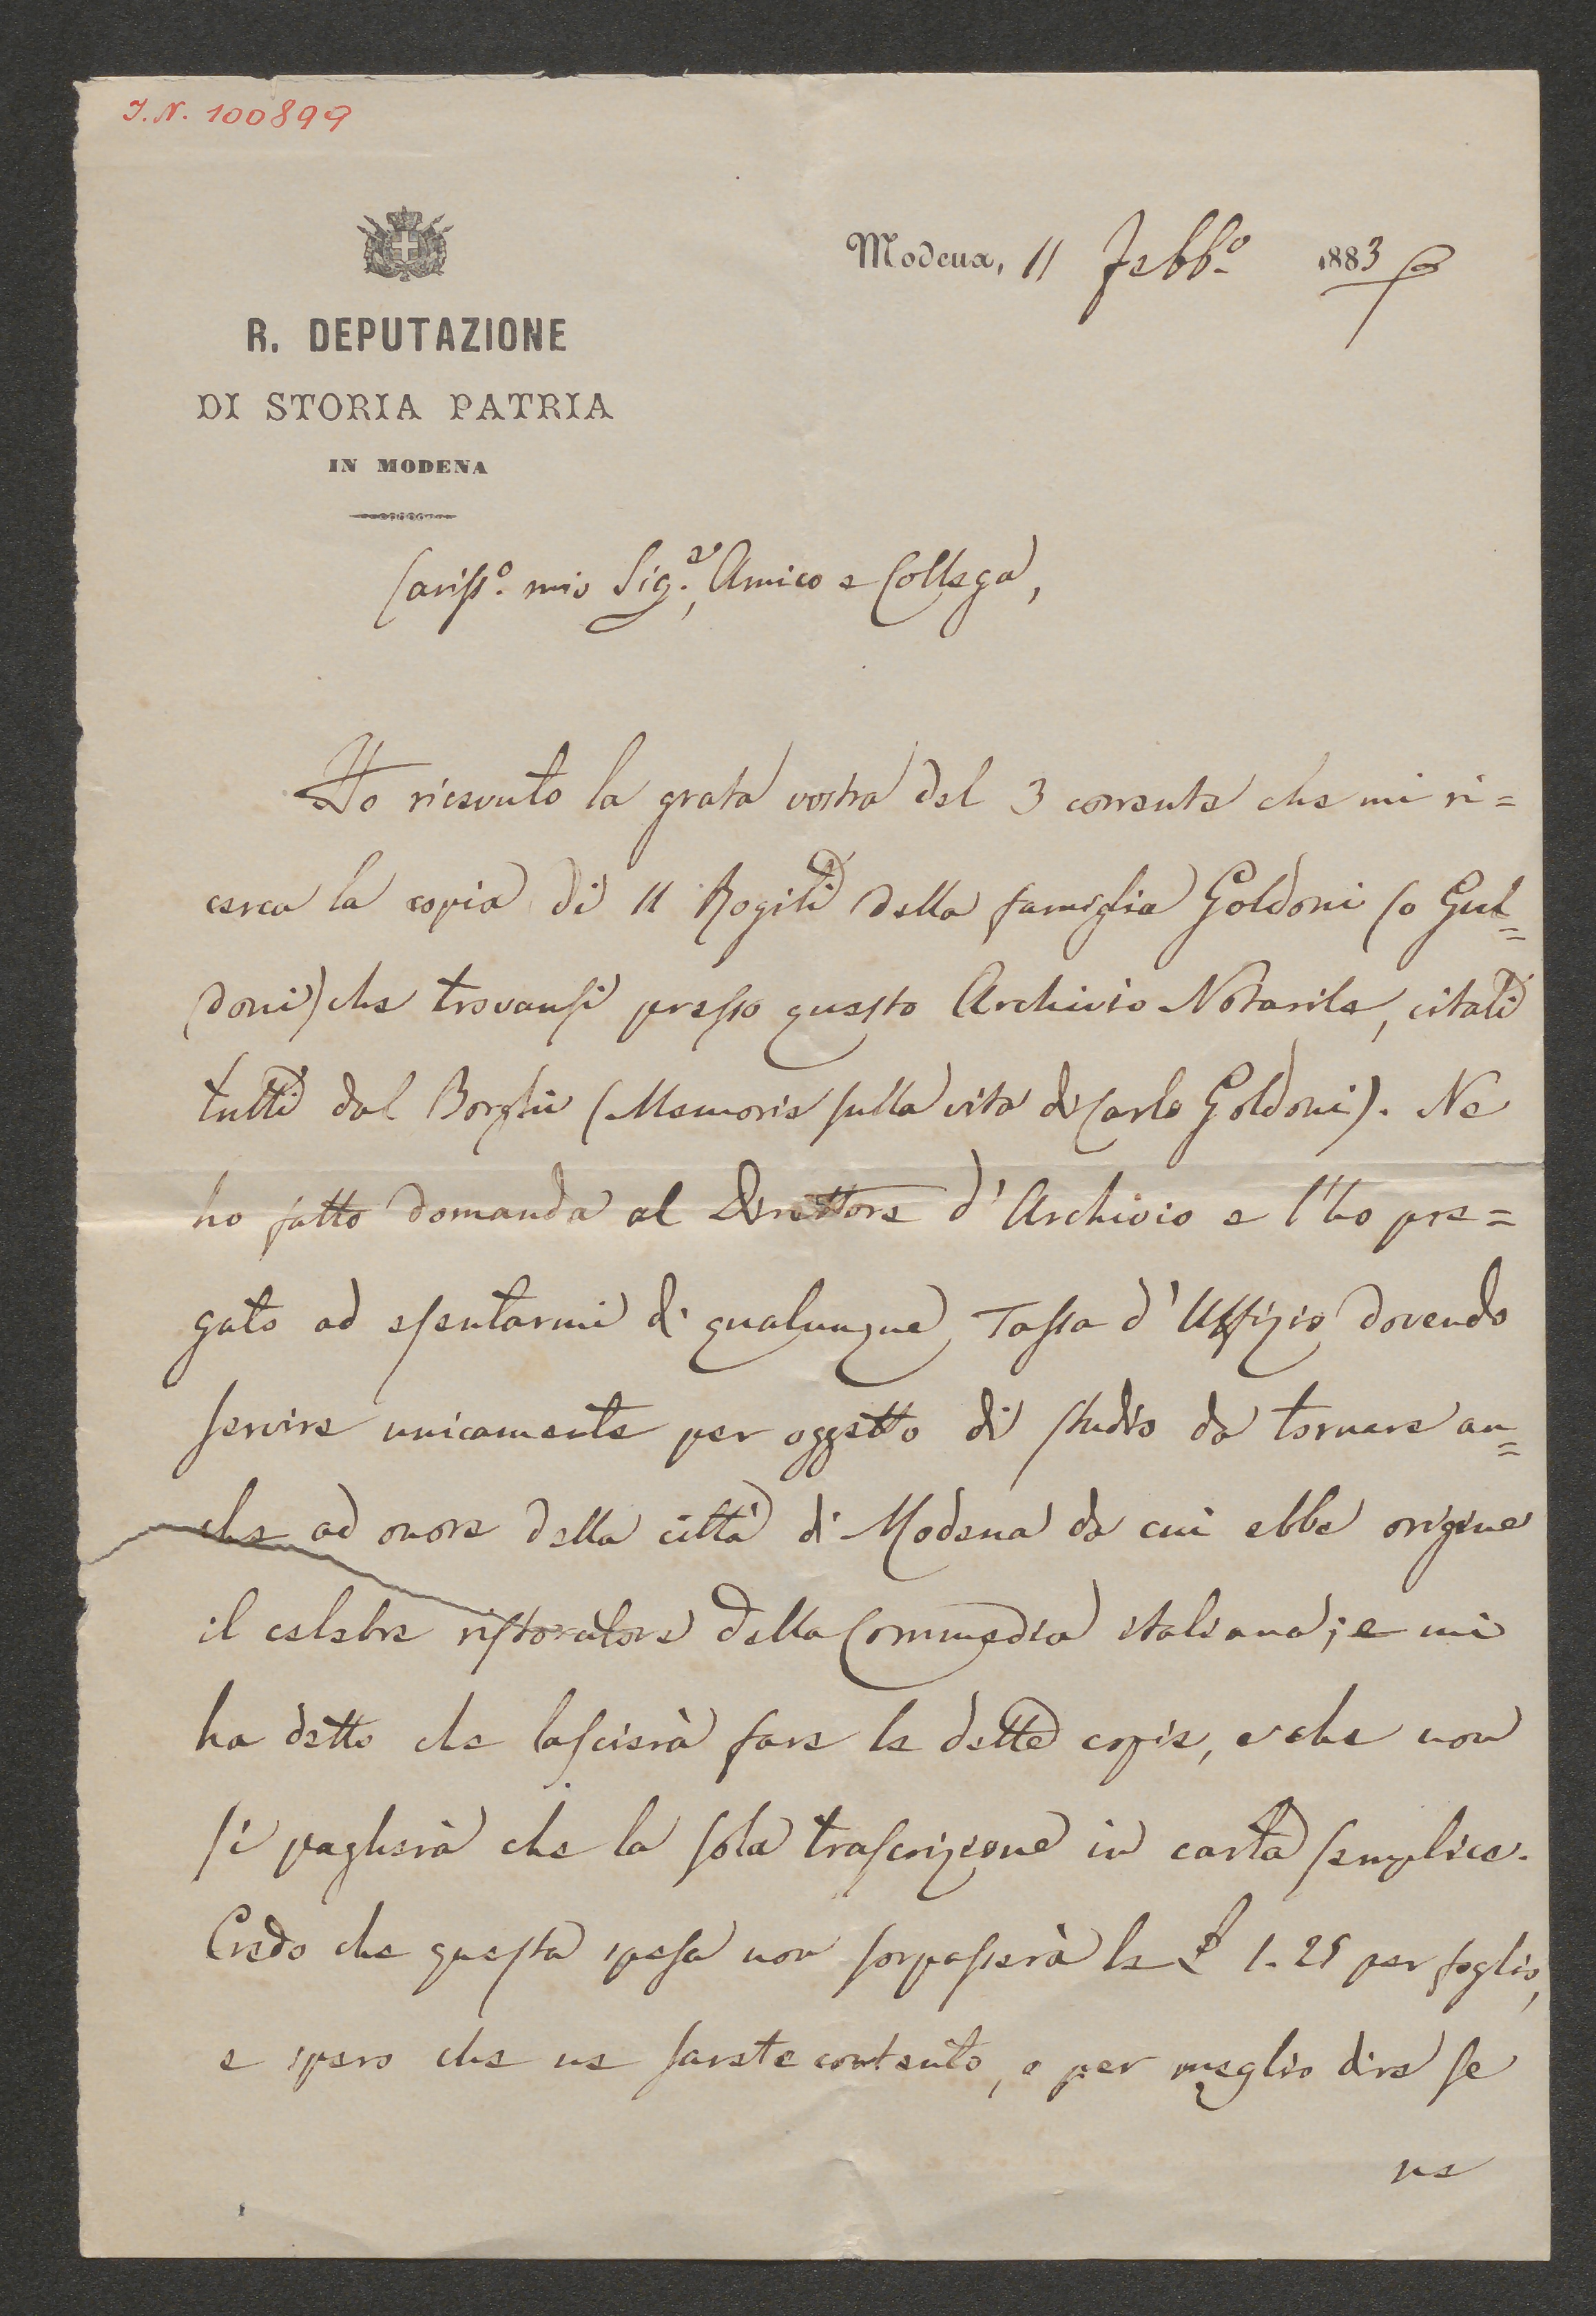 I.N. 100899
Modena, 11 Febb.º 1883
R. DEPUTAZIONE
DI STORIA PATRIA
IN MODENA
Cariss.º mio Sig.r, Amico e Collega,
Ho ricevuto la grata vostra del 3 corrente che mi ri=
cerca la copia di 11 Rogiti della famiglia Goldoni (o Gul=
doni) che trovansi presso questo Archivio Notarile, citati
tutti dal Borghi (Memorie sulla vita di Carlo Goldoni). Ne
ho fatto domanda al Direttore d'Archivio e l'ho pre=
gato ad esentarmi di qualunque Tassa d'Uffizio dovendo
servire unicamente per oggetto di studio da tornare an=
che ad onore della città di Modena da cui ebbe origine
il celebre ristoratore della Commedia italiana; e mi
ha detto che lascierà fare le dette copie, e che non
si pagherà che la sola trascrizione in carta semplice.
Credo che questa spesa non sorpasserà le £ 1.25 per foglio,
e spero che ne sarete contento, o per meglio dire se
ne